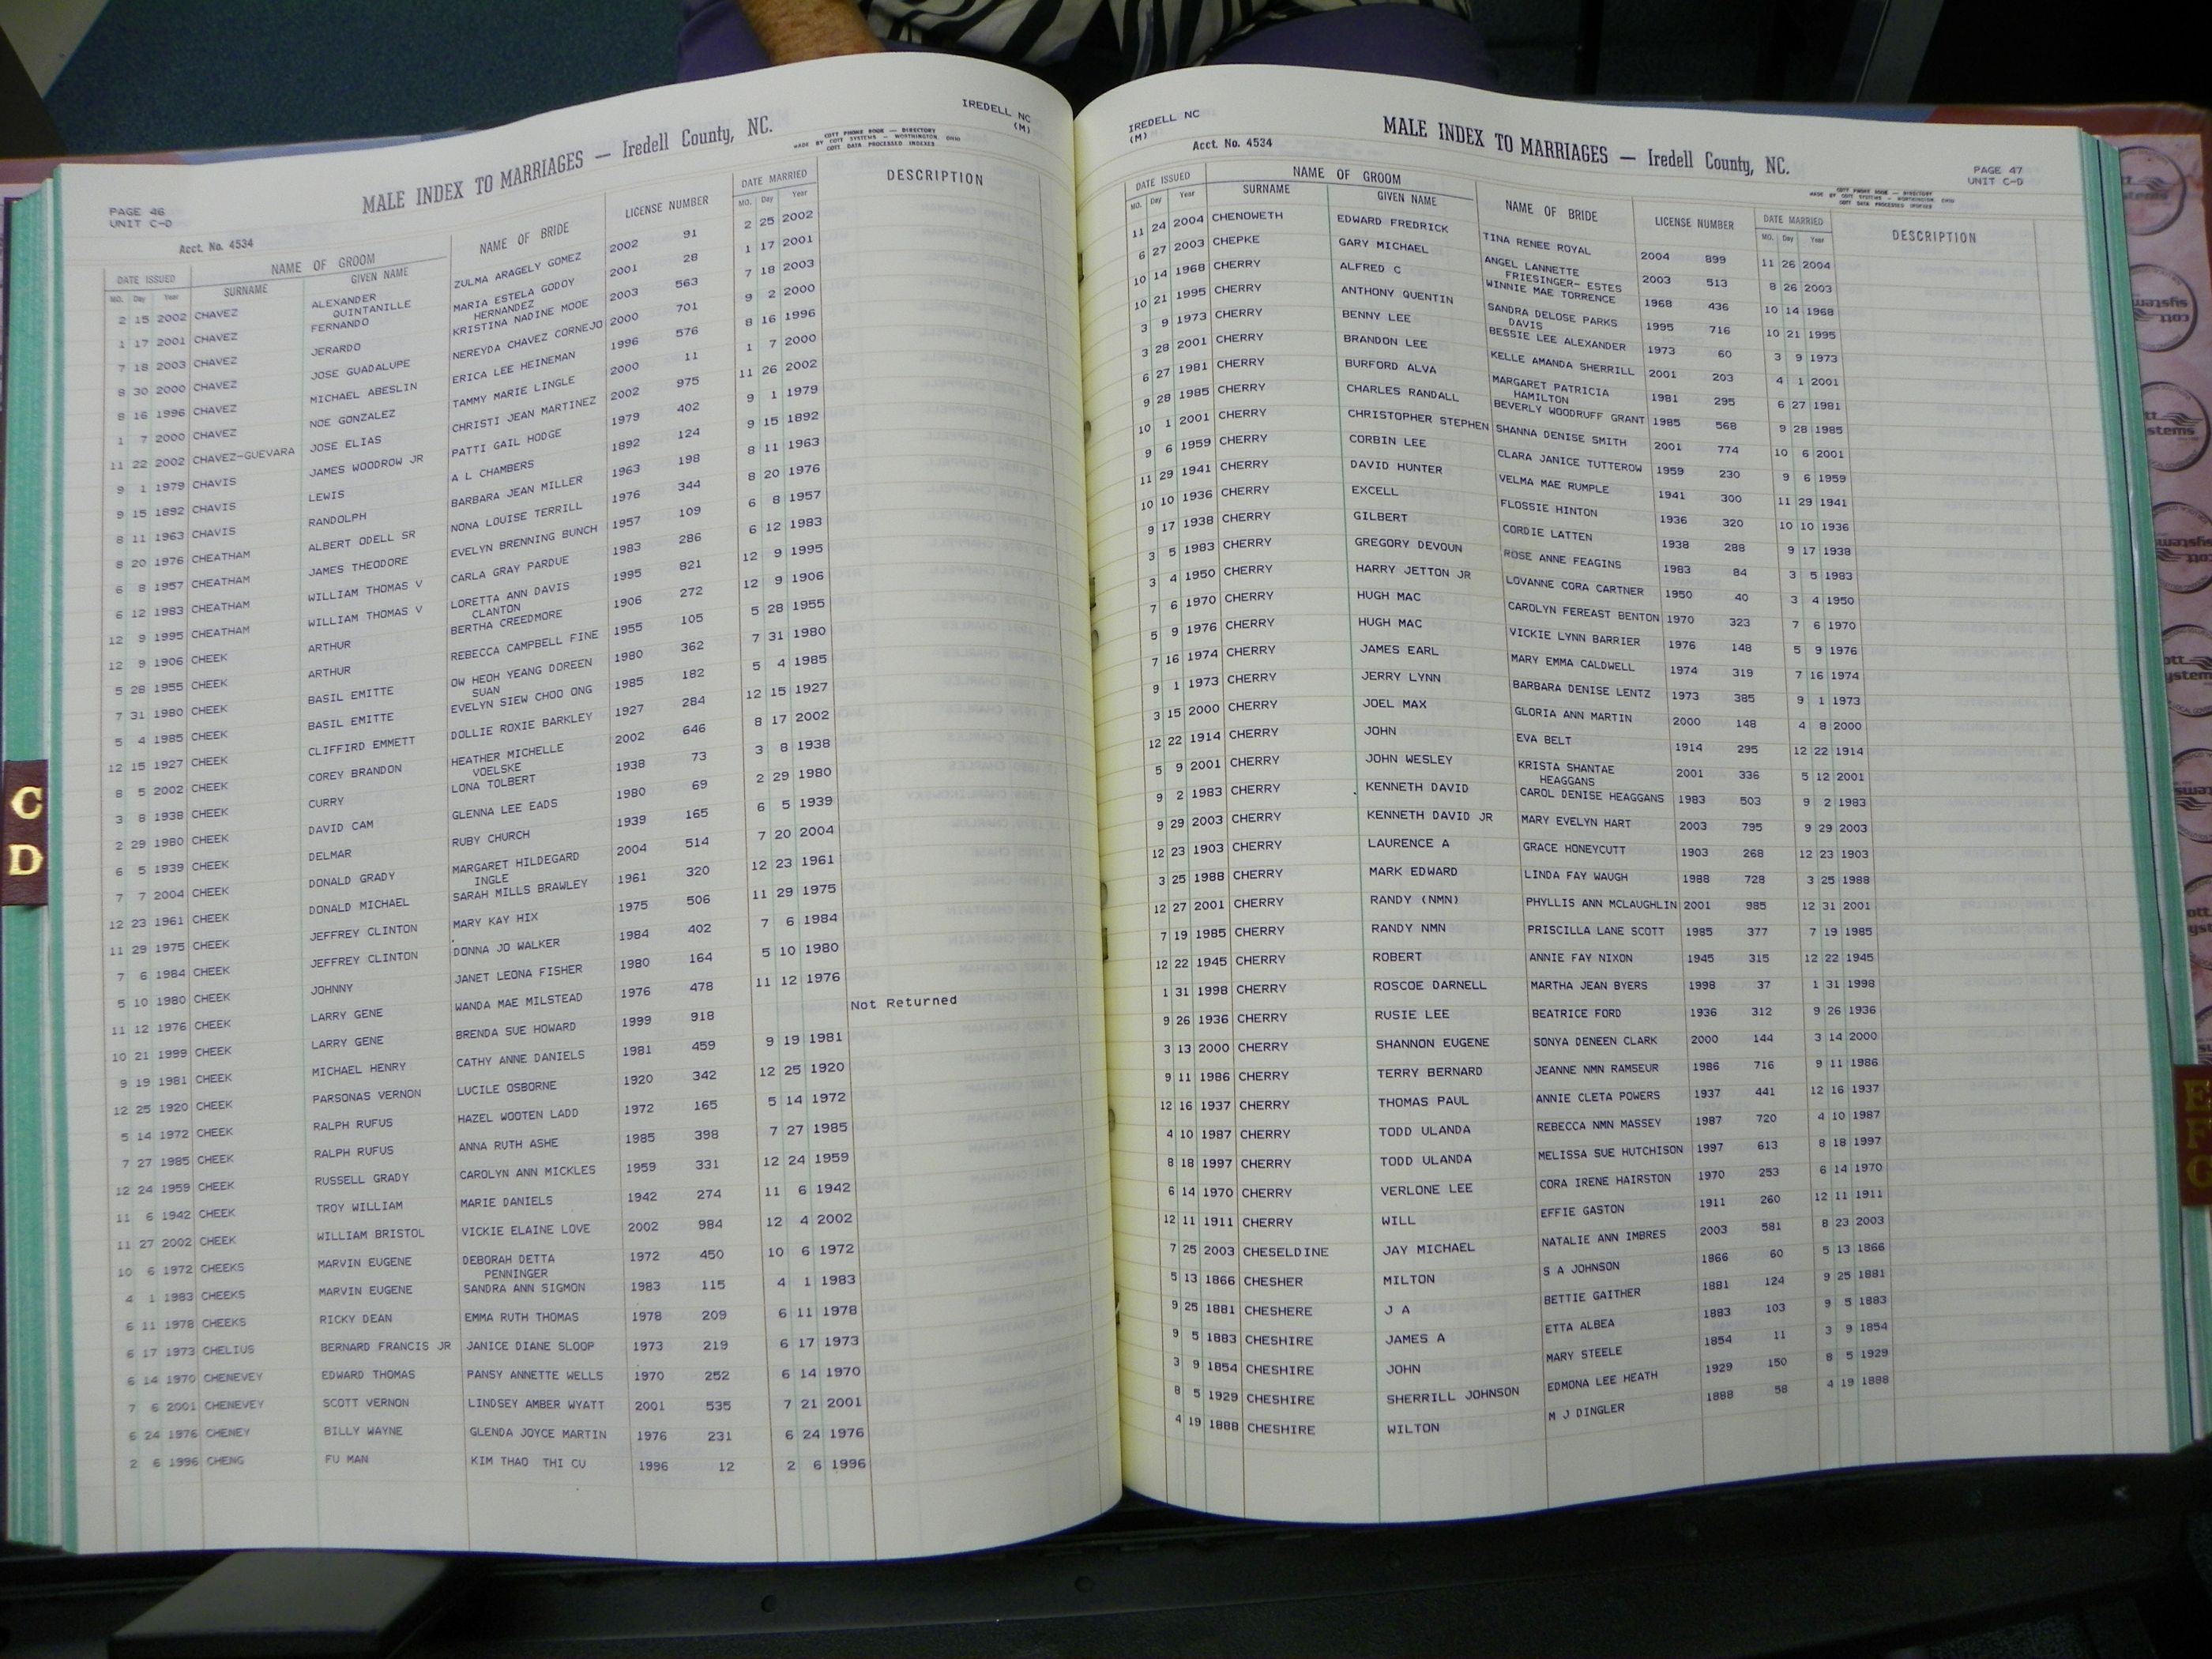 PAGE 46
UNIT C-D
MALE INDEX TO MARRIAGES — Iredell County, NC.
IREDELL NC
(M)
COTT PHONE BOOK — DIRECTORY
MADE BY COTT SYSTEMS — WORTHINGTON OHIO
COTT DATA PROCESSED INDEXES
Acct. No. 4534
DATE ISSUED NAME OF GROOM NAME OF BRIDE LICENSE NUMBER DATE MARRIED DESCRIPTION
MO. Day Year SURNAME GIVEN NAME MO. Day Year
2 15 2002 CHAVEZ ALEXANDER ZULMA ARAGELY GOMEZ 2002 91 2 25 2002
QUINTANILLE
1 17 2001 CHAVEZ FERNANDO MARIA ESTELA GODOY 2001 28 1 17 2001
HERNANDEZ
7 18 2003 CHAVEZ JERARDO KRISTINA NADINE MOOE 2003 563 7 18 2003
8 30 2000 CHAVEZ JOSE GUADALUPE NEREYDA CHAVEZ CORNEJO 2000 701 9 2 2000
8 16 1996 CHAVEZ MICHAEL ABESLIN ERICA LEE HEINEMAN 1996 576 8 16 1996
1 7 2000 CHAVEZ NOE GONZALEZ TAMMY MARIE LINGLE 2000 11 1 7 2000
11 22 2002 CHAVEZ-GUEVARA JOSE ELIAS CHRISTI JEAN MARTINEZ 2002 975 11 26 2002
9 1 1979 CHAVIS JAMES WOODROW JR PATTI GAIL HODGE 1979 402 9 1 1979
9 15 1892 CHAVIS LEWIS A L CHAMBERS 1892 124 9 15 1892
8 11 1963 CHAVIS RANDOLPH BARBARA JEAN MILLER 1963 198 8 11 1963
8 20 1976 CHEATHAM ALBERT ODELL SR NONA LOUISE TERRILL 1976 344 8 20 1976
6 8 1957 CHEATHAM JAMES THEODORE EVELYN BRENNING BUNCH 1957 109 6 8 1957
6 12 1983 CHEATHAM WILLIAM THOMAS V CARLA GRAY PARDUE 1983 286 6 12 1983
12 9 1995 CHEATHAM WILLIAM THOMAS V LORETTA ANN DAVIS 1995 821 12 9 1995
CLANTON
12 9 1906 CHEEK ARTHUR BERTHA CREEDMORE 1906 272 12 9 1906
5 28 1955 CHEEK ARTHUR REBECCA CAMPBELL FINE 1955 105 5 28 1955
7 31 1980 CHEEK BASIL EMITTE OW HEOH YEANG DOREEN 1980 362 7 31 1980
SUAN
5 4 1985 CHEEK BASIL EMITTE EVELYN SIEW CHOO ONG 1985 182 5 4 1985
12 15 1927 CHEEK CLIFFIRD EMMETT DOLLIE ROXIE BARKLEY 1927 284 12 15 1927
8 5 2002 CHEEK COREY BRANDON HEATHER MICHELLE 2002 646 8 17 2002
VOELSKE
3 8 1938 CHEEK CURRY LONA TOLBERT 1938 73 3 8 1938
2 29 1980 CHEEK DAVID CAM GLENNA LEE EADS 1980 69 2 29 1980
6 5 1939 CHEEK DELMAR RUBY CHURCH 1939 165 6 5 1939
7 7 2004 CHEEK DONALD GRADY MARGARET HILDEGARD 2004 514 7 20 2004
INGLE
12 23 1961 CHEEK DONALD MICHAEL SARAH MILLS BRAWLEY 1961 320 12 23 1961
11 29 1975 CHEEK JEFFREY CLINTON MARY KAY HIX 1975 506 11 29 1975
7 6 1984 CHEEK JEFFREY CLINTON DONNA JO WALKER 1984 402 7 6 1984
5 10 1980 CHEEK JOHNNY JANET LEONA FISHER 1980 164 5 10 1980
11 12 1976 CHEEK LARRY GENE WANDA MAE MILSTEAD 1976 478 11 12 1976
10 21 1999 CHEEK LARRY GENE BRENDA SUE HOWARD 1999 918 Not Returned
9 19 1981 CHEEK MICHAEL HENRY CATHY ANNE DANIELS 1981 459 9 19 1981
12 25 1920 CHEEK PARSONAS VERNON LUCILE OSBORNE 1920 342 12 25 1920
5 14 1972 CHEEK RALPH RUFUS HAZEL WOOTEN LADD 1972 165 5 14 1972
7 27 1985 CHEEK RALPH RUFUS ANNA RUTH ASHE 1985 398 7 27 1985
12 24 1959 CHEEK RUSSELL GRADY CAROLYN ANN MICKLES 1959 331 12 24 1959
11 6 1942 CHEEK TROY WILLIAM MARIE DANIELS 1942 274 11 6 1942
11 27 2002 CHEEK WILLIAM BRISTOL VICKIE ELAINE LOVE 2002 984 12 4 2002
10 6 1972 CHEEKS MARVIN EUGENE DEBORAH DETTA 1972 450 10 6 1972
PENNINGER
4 1 1983 CHEEKS MARVIN EUGENE SANDRA ANN SIGMON 1983 115 4 1 1983
6 11 1978 CHEEKS RICKY DEAN EMMA RUTH THOMAS 1978 209 6 11 1978
6 17 1973 CHELIUS BERNARD FRANCIS JR JANICE DIANE SLOOP 1973 219 6 17 1973
6 14 1970 CHENEVEY EDWARD THOMAS PANSY ANNETTE WELLS 1970 252 6 14 1970
7 6 2001 CHENEVEY SCOTT VERNON LINDSEY AMBER WYATT 2001 535 7 21 2001
6 24 1976 CHENEY BILLY WAYNE GLENDA JOYCE MARTIN 1976 231 6 24 1976
2 6 1996 CHENG FU MAN KIM THAO THI CU 1996 12 2 6 1996
C
D
IREDELL NC
(M)
MALE INDEX TO MARRIAGES — Iredell County, NC.
PAGE 47
UNIT C-D
Acct. No. 4534
COTT PHONE BOOK — DIRECTORY
MADE BY COTT SYSTEMS — WORTHINGTON OHIO
COTT DATA PROCESSED INDEXES
DATE ISSUED NAME OF GROOM NAME OF BRIDE LICENSE NUMBER DATE MARRIED DESCRIPTION
MO. Day Year SURNAME GIVEN NAME MO. Day Year
11 24 2004 CHENOWETH EDWARD FREDRICK TINA RENEE ROYAL 2004 899 11 26 2004
6 27 2003 CHEPKE GARY MICHAEL ANGEL LANNETTE 2003 513 8 26 2003
FRIESINGER- ESTES
10 14 1968 CHERRY ALFRED C WINNIE MAE TORRENCE 1968 436 10 14 1968
10 21 1995 CHERRY ANTHONY QUENTIN SANDRA DELOSE PARKS 1995 716 10 21 1995
DAVIS
3 9 1973 CHERRY BENNY LEE BESSIE LEE ALEXANDER 1973 60 3 9 1973
3 28 2001 CHERRY BRANDON LEE KELLE AMANDA SHERRILL 2001 203 4 1 2001
6 27 1981 CHERRY BURFORD ALVA MARGARET PATRICIA 1981 295 6 27 1981
HAMILTON
9 28 1985 CHERRY CHARLES RANDALL BEVERLY WOODRUFF GRANT 1985 568 9 28 1985
10 1 2001 CHERRY CHRISTOPHER STEPHEN SHANNA DENISE SMITH 2001 774 10 6 2001
9 6 1959 CHERRY CORBIN LEE CLARA JANICE TUTTEROW 1959 230 9 6 1959
11 29 1941 CHERRY DAVID HUNTER VELMA MAE RUMPLE 1941 300 11 29 1941
10 10 1936 CHERRY EXCELL FLOSSIE HINTON 1936 320 10 10 1936
9 17 1938 CHERRY GILBERT CORDIE LATTEN 1938 288 9 17 1938
3 5 1983 CHERRY GREGORY DEVOUN ROSE ANNE FEAGINS 1983 84 3 5 1983
3 4 1950 CHERRY HARRY JETTON JR LOVANNE CORA CARTNER 1950 40 3 4 1950
7 6 1970 CHERRY HUGH MAC CAROLYN FEREAST BENTON 1970 323 7 6 1970
5 9 1976 CHERRY HUGH MAC VICKIE LYNN BARRIER 1976 148 5 9 1976
7 16 1974 CHERRY JAMES EARL MARY EMMA CALDWELL 1974 319 7 16 1974
9 1 1973 CHERRY JERRY LYNN BARBARA DENISE LENTZ 1973 385 9 1 1973
3 15 2000 CHERRY JOEL MAX GLORIA ANN MARTIN 2000 148 4 8 2000
12 22 1914 CHERRY JOHN EVA BELT 1914 295 12 22 1914
5 9 2001 CHERRY JOHN WESLEY KRISTA SHANTAE 2001 336 5 12 2001
HEAGGANS
9 2 1983 CHERRY KENNETH DAVID CAROL DENISE HEAGGANS 1983 503 9 2 1983
9 29 2003 CHERRY KENNETH DAVID JR MARY EVELYN HART 2003 795 9 29 2003
12 23 1903 CHERRY LAURENCE A GRACE HONEYCUTT 1903 268 12 23 1903
3 25 1988 CHERRY MARK EDWARD LINDA FAY WAUGH 1988 728 3 25 1988
12 27 2001 CHERRY RANDY (NMN) PHYLLIS ANN MCLAUGHLIN 2001 985 12 31 2001
7 19 1985 CHERRY RANDY NMN PRISCILLA LANE SCOTT 1985 377 7 19 1985
12 22 1945 CHERRY ROBERT ANNIE FAY NIXON 1945 315 12 22 1945
1 31 1998 CHERRY ROSCOE DARNELL MARTHA JEAN BYERS 1998 37 1 31 1998
9 26 1936 CHERRY RUSIE LEE BEATRICE FORD 1936 312 9 26 1936
3 13 2000 CHERRY SHANNON EUGENE SONYA DENEEN CLARK 2000 144 3 14 2000
9 11 1986 CHERRY TERRY BERNARD JEANNE NMN RAMSEUR 1986 716 9 11 1986
12 16 1937 CHERRY THOMAS PAUL ANNIE CLETA POWERS 1937 441 12 16 1937
4 10 1987 CHERRY TODD ULANDA REBECCA NMN MASSEY 1987 720 4 10 1987
8 18 1997 CHERRY TODD ULANDA MELISSA SUE HUTCHISON 1997 613 8 18 1997
6 14 1970 CHERRY VERLONE LEE CORA IRENE HAIRSTON 1970 253 6 14 1970
12 11 1911 CHERRY WILL EFFIE GASTON 1911 260 12 11 1911
7 25 2003 CHESELDINE JAY MICHAEL NATALIE ANN IMBRES 2003 581 8 23 2003
5 13 1866 CHESHER MILTON S A JOHNSON 1866 60 5 13 1866
9 25 1881 CHESHERE J A BETTIE GAITHER 1881 124 9 25 1881
9 5 1883 CHESHIRE JAMES A ETTA ALBEA 1883 103 9 5 1883
3 9 1854 CHESHIRE JOHN MARY STEELE 1854 11 3 9 1854
8 5 1929 CHESHIRE SHERRILL JOHNSON EDMONA LEE HEATH 1929 150 8 5 1929
4 19 1888 CHESHIRE WILTON M J DINGLER 1888 58 4 19 1888